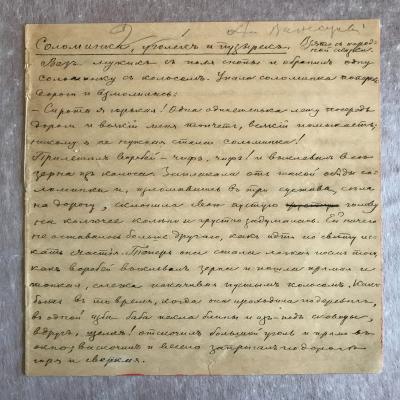 Ал. Вьюгов
Соломинка, уголекъ и пузырекъ.
Взято съ народ-
ной сказки.
Везъ мужикъ съ поля снопы и обронилъ одну
соломинку съ колосомъ. Упала соломинка поперекъ
дороги и взмолилась:
— Сирота я горькая! Одна одинешенька лежу посреди
дороги и всякій меня топчетъ, всякій помыкаетъ;
никому я не нужная стала соломинка!
Прилетѣлъ воробей — чиръ, чиръ! и выклевалъ все
зерна изъ колоса. Заплакала отъ такой бѣды со-
ломинка и, преломившись въ три сустава, сѣла
на дорогу, склонила свою пустую голову
на колючее колѣно и грустно задумалась. Ей ничего
не оставалось больше другого, какъ идти по свѣту ис-
кать счастья. Теперь она стала легка послѣ того,
какъ воробей выклевалъ зерна и пошла прямая и
тонкая, слегка покачивая пустымъ колосомъ. Какъ
разъ въ то время, когда она проходила по деревнѣ,
въ одной избѣ баба пекла блины и изъ-подъ сковороды,
вдругъ, щелкъ! отскочилъ большой уголь и прямо въ
окно выскочилъ и весело запрыгалъ по дорогѣ
горя и сверкая.